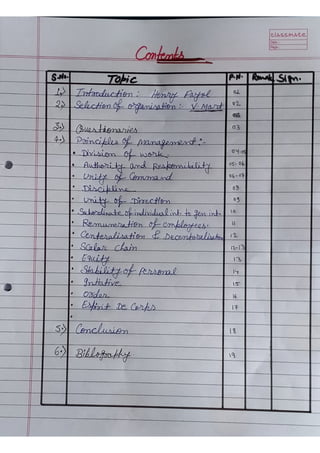 classmate
Date
Page
Contents
S.No. Topic P.N. Remark Sign.
1.) Introduction: Henry Fayol 02
2.) Selection of organisation:- V Mart 02
3.) Questionaries 03
4.) Principles of management:-
• Division of work 04-05
• Authority and Responsibility 05-06
• Unity of Command 06-07
• Discipline 08
• Unity of Direction 09
• Subordinate of individual int. to gen int. 10
• Remuneration of employees 11
• Centeralisation & Decenteralisation 12
• Scalar Chain 12-13
• Equity 13
• Stability of Personal 14
• Initiative 15
• Order 16
• Esprit De Corps 17
•
5.) Conclusion 18
6.) Bibliography 19